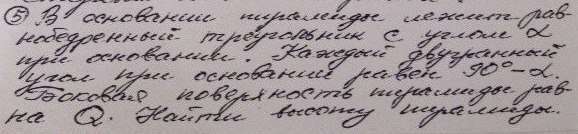 ⑤ В основании пирамиды лежит рав-
нобедренный треугольник с углом α
при основании. Каждый двугранный
угол при основании равен 90° - α.
Боковая поверхность пирамиды рав-
на Q. Найти высоту пирамиды.